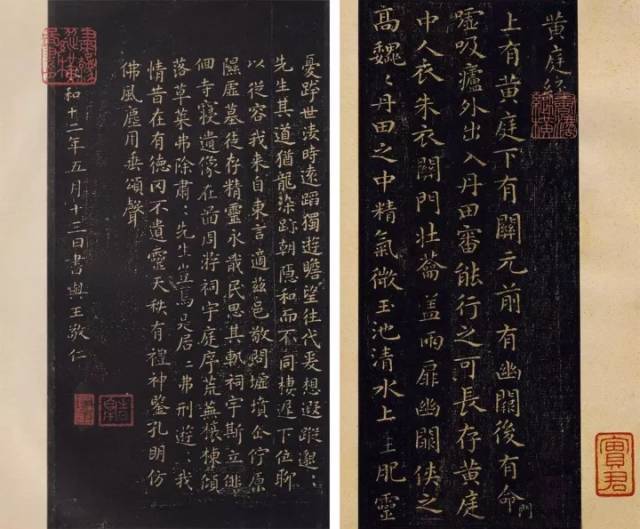 黄庭經
上有黄庭下有關元前有幽闕後有命門
噓吸廬外出入丹田審能行之可長存黄庭
中人衣朱衣關門壯蘥盖兩扉幽闕俠之
高魏〃丹田之中精氣微玉池清水上生肥靈
實君
憂跨世凌時遠蹈獨遊瞻望往代爰想遐蹤邈〃
先生其道猶龍染跡朝隱和而不同棲遅下位聊
以從容我来自東言適兹邑敬問墟墳企佇原
隰墟墓徒存精靈永戢民思其軌祠宇斯立俳
佪寺寝遺像在啚周旋祠宇庭序荒蕪榱棟傾
落草莱弗除肅〃先生豈焉是居〃弗刑遊〃我
情昔在有德罔不遺靈天秩有禮神鑒孔明仿
佛風塵用垂頌聲
和十二年五月十三日書與王敬仁